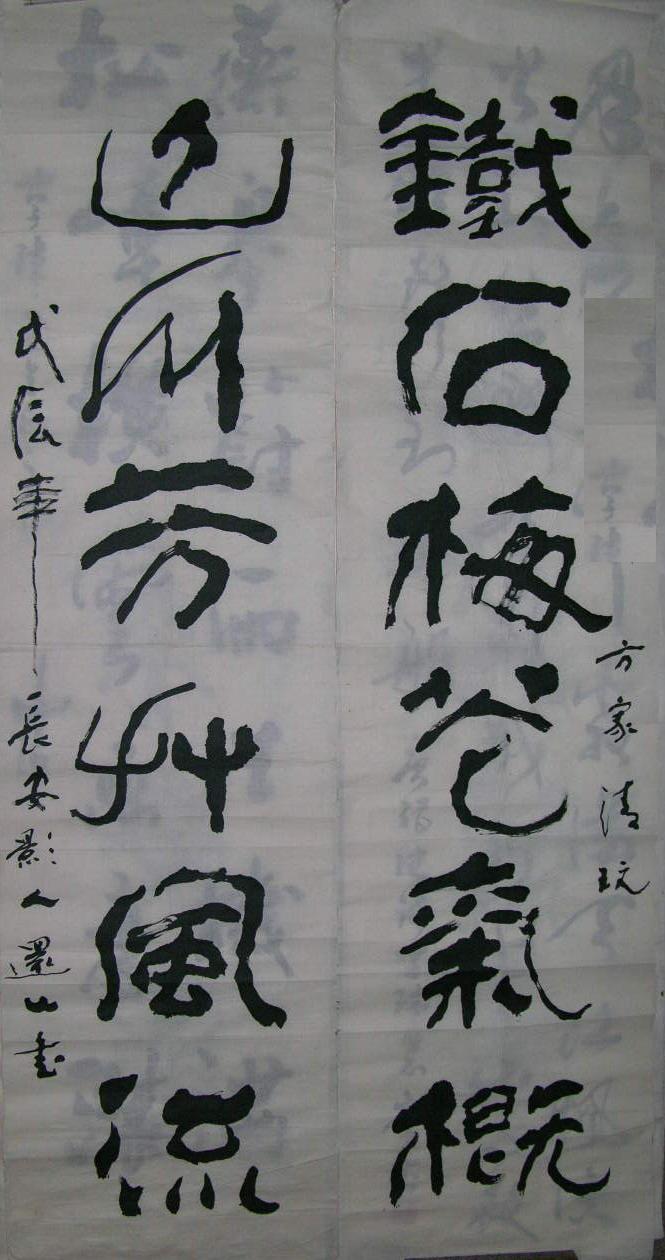 方家清玩
鐵石梅花氣概
山川芳艸風流
戊辰年長安影人還山書